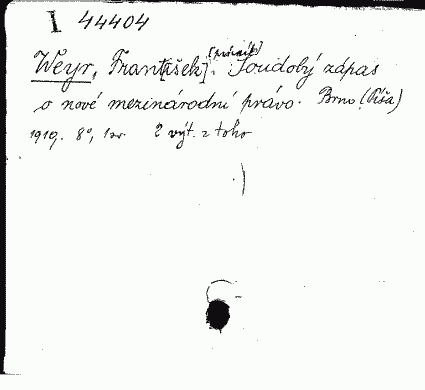 I 44404
[právník]
Weyr, Frant[išek]: Soudobý zápas
o nové mezinárodní právo. Brno (Píša)
1919. 8°, 1 sv. 2 výt. z toho